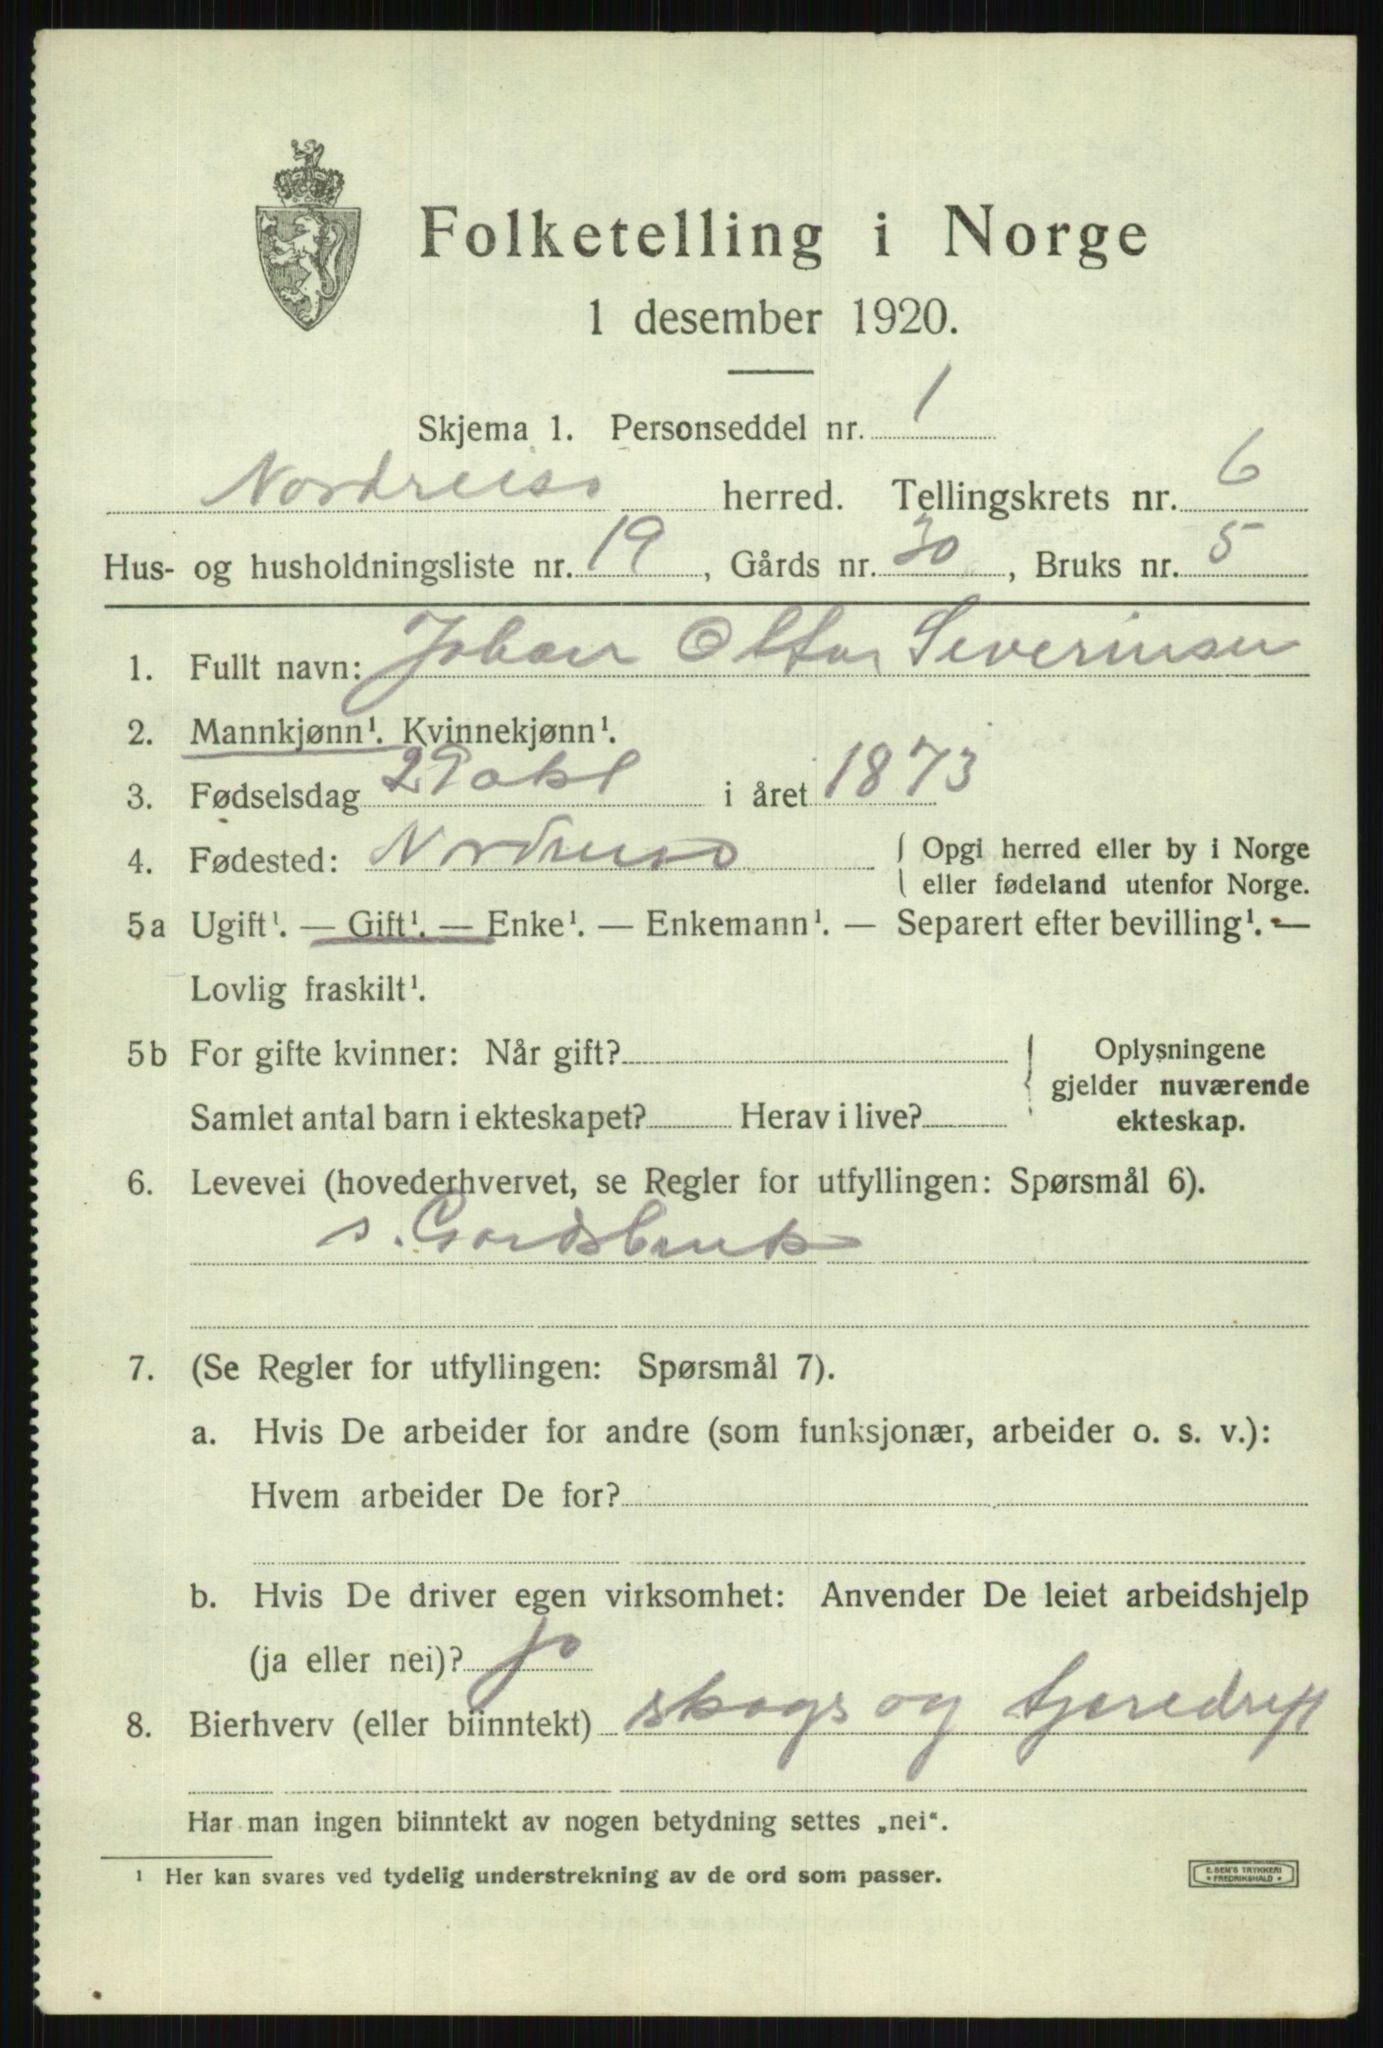 Folketelling i Norge
1 desember 1920.
Skjema 1. Personseddel nr. 1
Nordreisa herred. Tellingskrets nr. 6
Hus- og husholdningsliste nr. 19, Gårds nr. 30, Bruks nr. 5
1. Fullt navn: Johan Severinsen
2. Mannkjønn¹. Kvinnekjønn¹.
3. Fødselsdag 29 okt i året 1873
4. Fødested: Nordreisa { Opgi herred eller by i Norge
eller fødeland utenfor Norge.
5a Ugift¹. — Gift¹. — Enke¹. — Enkemann¹. — Separert efter bevilling¹. —
Lovlig fraskilt¹.
5b For gifte kvinner: Når gift? { Oplysningene
gjelder nuværende
Samlet antal barn i ekteskapet? Herav i live? ekteskap.
6. Levevei (hovederhvervet, se Regler for utfyllingen: Spørsmål 6).
s. Gardsbruk
7. (Se Regler for utfyllingen: Spørsmål 7).
a. Hvis De arbeider for andre (som funksjonær, arbeider o. s. v.):
Hvem arbeider De for?
b. Hvis De driver egen virksomhet: Anvender De leiet arbeidshjelp
(ja eller nei)? ja
8. Bierhverv (eller biinntekt) skogs og tjæredrift
Har man ingen biinntekt av nogen betydning settes „nei“.
¹ Her kan svares ved tydelig understrekning av de ord som passer.
E. SEM'S TRYKKERI
* FREDRIKSHALD *